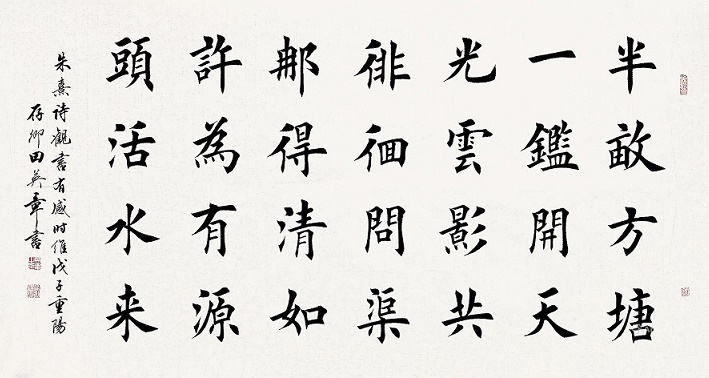 半畝方塘
一鑑開天
光雲影共
徘徊問渠
那得清如
許為有源
頭活水来
朱熹诗觀書有感时维戊子重陽
存卿田英章書